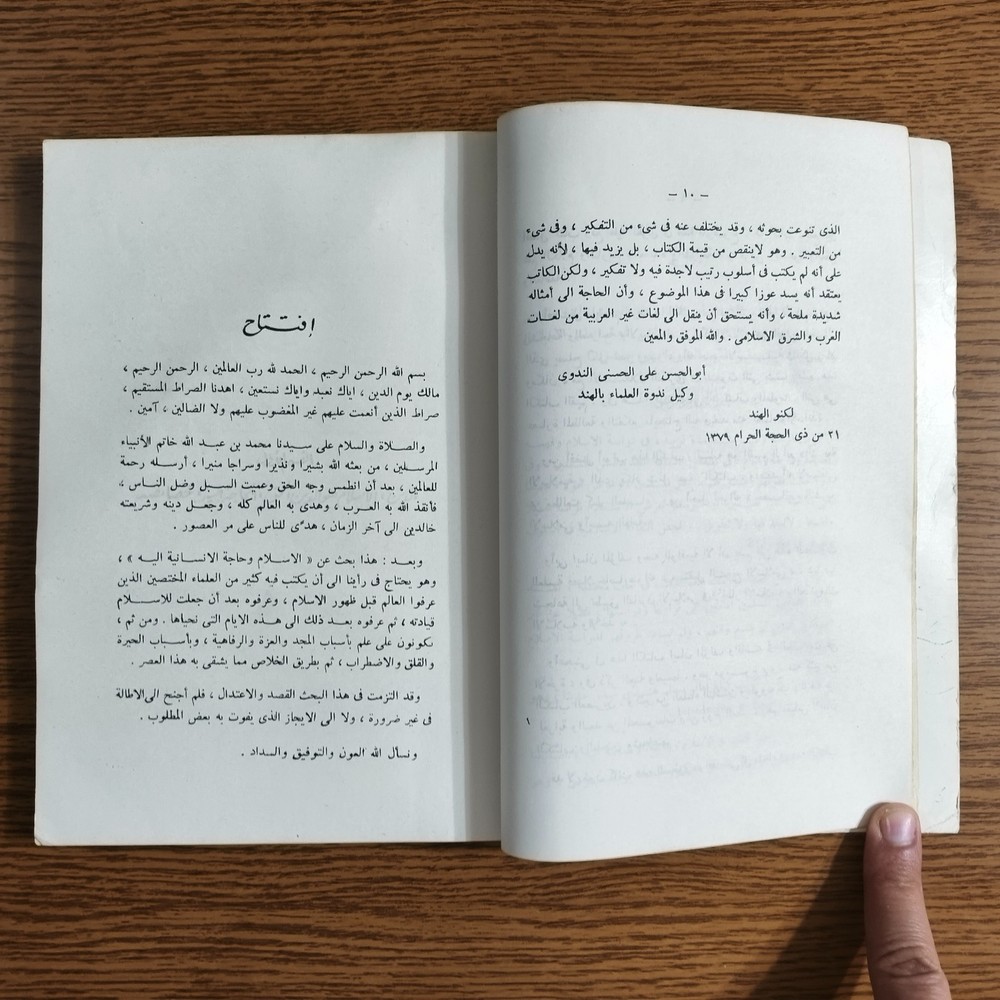 — ١٠ —
الذى تنوعت بحوثه ، وقد يختلف عنه فى شىء من التفكير ، وفى شىء
من التعبير . وهو لاينقص من قيمة الكتاب ، بل يزيد فيها ، لأنه يدل
على أنه لم يكتب فى أسلوب رتيب لاجدة فيه ولا تفكير ، ولكن الكاتب
يعتقد أنه يسد عوزا كبيرا فى هذا الموضوع ، وأن الحاجة الى أمثاله
شديدة ملحة ، وأنه يستحق أن ينقل الى لغات غير العربية من لغات
الغرب والشرق الاسلامى . والله الموفق والمعين
أبوالحسن على الحسنى الندوى
وكيل ندوة العلماء بالهند
لكنو الهند
٢١ من ذى الحجة الحرام ١٣٧٩
١
إفتتاح
بسم الله الرحمن الرحيم ، الحمد لله رب العالمين ، الرحمن الرحيم ،
مالك يوم الدين ، اياك نعبد واياك نستعين ، اهدنا الصراط المستقيم ،
صراط الذين أنعمت عليهم غير المغضوب عليهم ولا الضالين ، آمين .
والصلاة والسلام على سيدنا محمد بن عبد الله خاتم الأنبياء
المرسلين ، من بعثه الله بشيرا ونذيرا وسراجا منيرا ، أرسله رحمة
للعالمين ، بعد أن انطمس وجه الحق وعميت السبل وضل الناس ،
فأنقذ الله به العرب ، وهدى به العالم كله ، وجعل دينه وشريعته
خالدين الى آخر الزمان ، هدًى للناس على مر العصور .
وبعد : هذا بحث عن « الاسلام وحاجة الانسانية اليه » ،
وهو يحتاج فى رأينا الى أن يكتب فيه كثير من العلماء المختصين الذين
عرفوا العالم قبل ظهور الاسلام ، وعرفوه بعد أن جعلت للاسلام
قيادته ، ثم عرفوه بعد ذلك الى هذه الايام التى نحياها . ومن ثم ،
يكونون على علم بأسباب المجد والعزة والرفاهية ، وبأسباب الحيرة
والقلق والاضطراب ، ثم بطريق الخلاص مما يشقى به هذا العصر .
وقد التزمت فى هذا البحث القصد والاعتدال ، فلم أجنح الى الاطالة
فى غير ضرورة ، ولا الى الايجاز الذى يفوت به بعض المطلوب .
ونسأل الله العون والتوفيق والسداد .